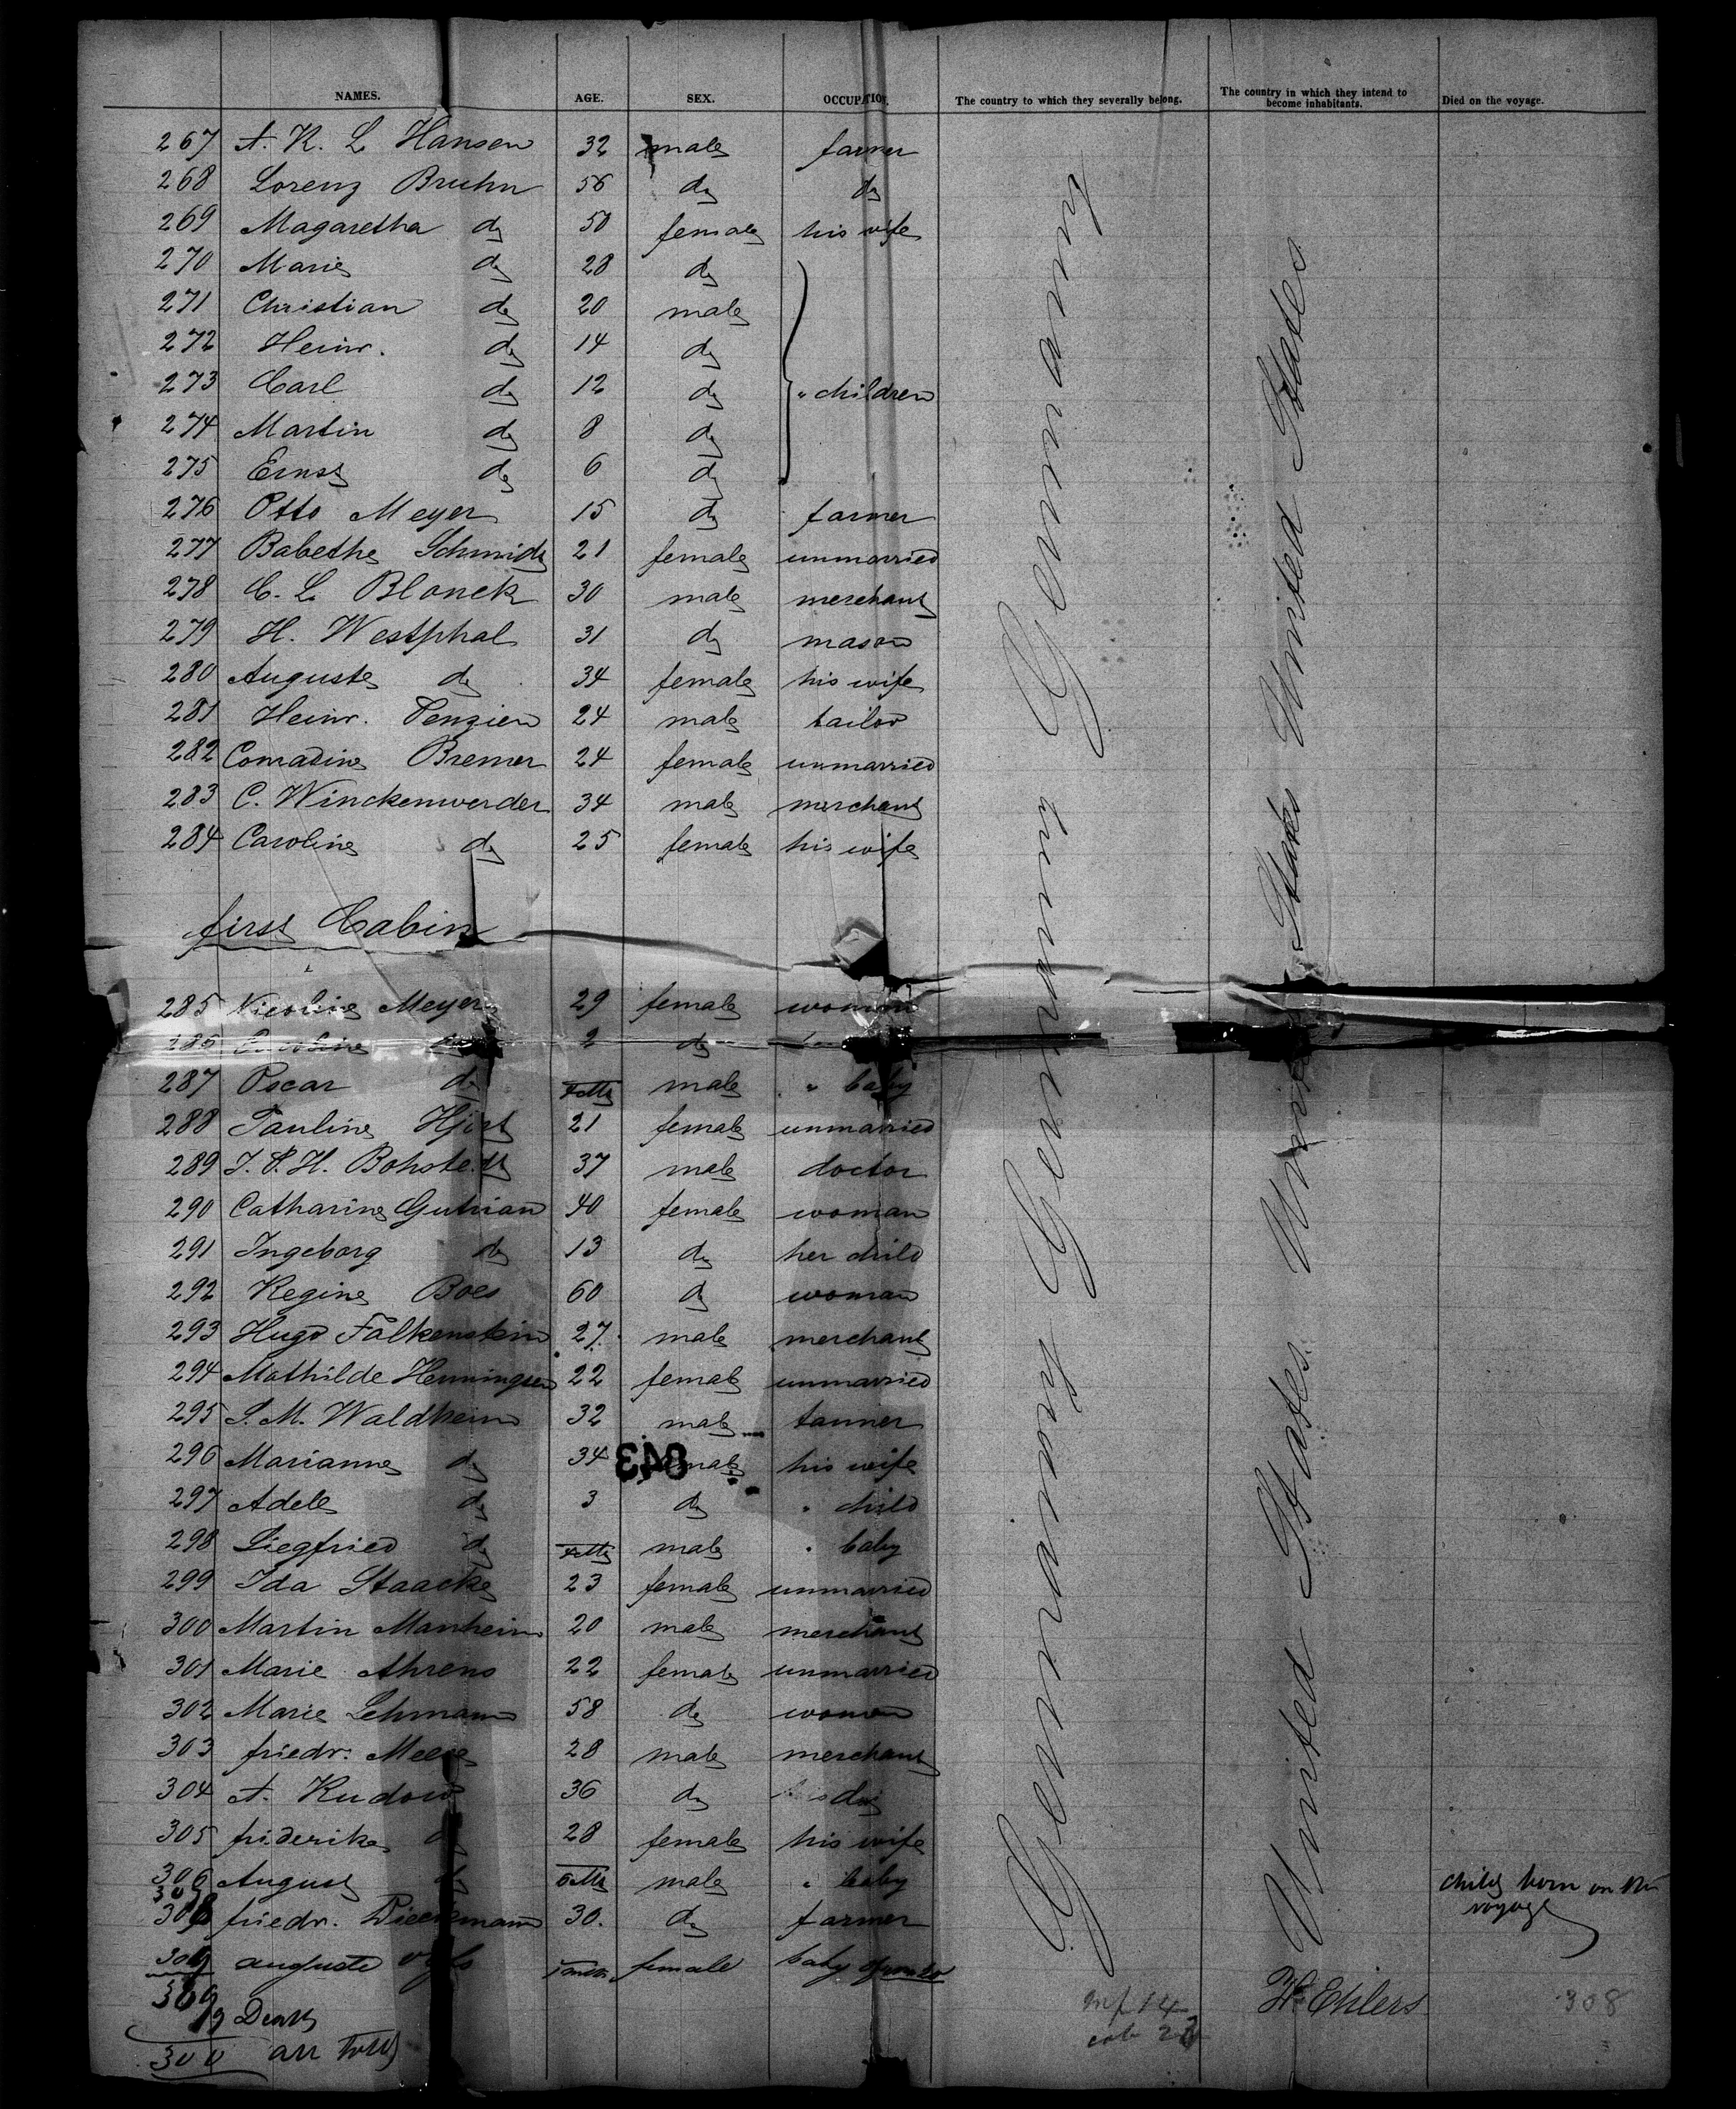 NAMES. AGE. SEX. OCCUPATION. The country to which they severally belong. The country in which they intend to become inhabitants. Died on the voyage.
267 A. K. L Hansen 32 male farmer
268 Lorenz Bruhn 56 do do
269 Magaretha do 50 female his wife
270 Marie do 28 do
271 Christian do 20 male
272 Heinr. do 14 do
273 Carl do 12 do " children
274 Martin do 8 do
275 Ernst do 6 do
276 Otto Meyer 15 do farmer
277 Babethe Schmidt 21 female unmarried
278 C. L Blonck 30 male merchant
279 H. Westphal 31 do mason
280 Auguste do 34 female his wife
281 Heinr. Penzien 24 male tailor
282 Conradine Bremer 24 female unmarried
283 C. Winckenwerder 34 male merchant
284 Caroline do 25 female his wife
first Cabin
285 Nicoline Meyer 29 female woman
286 2 do
287 Oscar do male " baby
288 Pauline Hjort 21 female unmarried
289 J. P. H. Bohstedt 37 male doctor
290 Catharine Gutrian 40 female woman
291 Ingeborg do 13 do her child
292 Regine Boes 60 do woman
293 Hugo Falkenstein 27. male merchant
294 Mathilde Henningsen 22 female unmarried
295 S. M. Waldheim 32 male tanner
296 Marianne do 34 his wife
843
297 Adele do 3 do " child
298 Siegfried do male " baby
299 Ida Staacke 23 female unmarried
300 Martin Manheim 20 male merchant
301 Marie Ahrens 22 female unmarried
302 Marie Lehmann 58 do woman
303 friedr. 28 male merchant
304 A. Kudow 36 do do
305 friderike do 28 female his wife
306 August do male " baby
307
308 friedr. Dieckmann 30. do farmer
309 auguste female baby
child born on the
voyage
Germany Germany Germany Germany
United States United States United States United States
309
9 Death
300 arr
W. Ehlers
308
inf 14